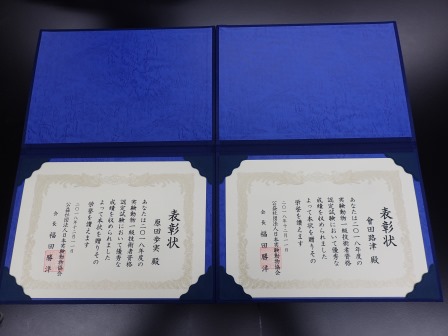 表彰状
原田幸実 殿
あなたは二〇一八年度の
実験動物一級技術者資格
認定試験において優秀な
成績を収められました
よって本状を贈りその
栄誉を讃えます
二〇一八年十二月一日
公益社団法人日本実験動物協会
会長 福田勝洋
表彰状
會田路津 殿
あなたは二〇一八年度の
実験動物一級技術者資格
認定試験において優秀な
成績を収められました
よって本状を贈りその
栄誉を讃えます
二〇一八年十二月一日
公益社団法人日本実験動物協会
会長 福田勝洋